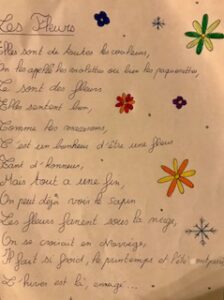 Les Fleurs
Elles sont de toutes les couleurs,
On les appelle les violettes ou bien les paquerettes,
Ce sont des fleurs
Elles sentent bon,
Comme les
C'est un bonheur d'être une fleur
d'honneur,
Mais tout a une fin,
On peut déjà voir le sapin
Les fleurs fanent sous la neige,
On se croirait en Norvège,
Il fait si froid, le printemps et l'été sont passés
L'hiver est là,